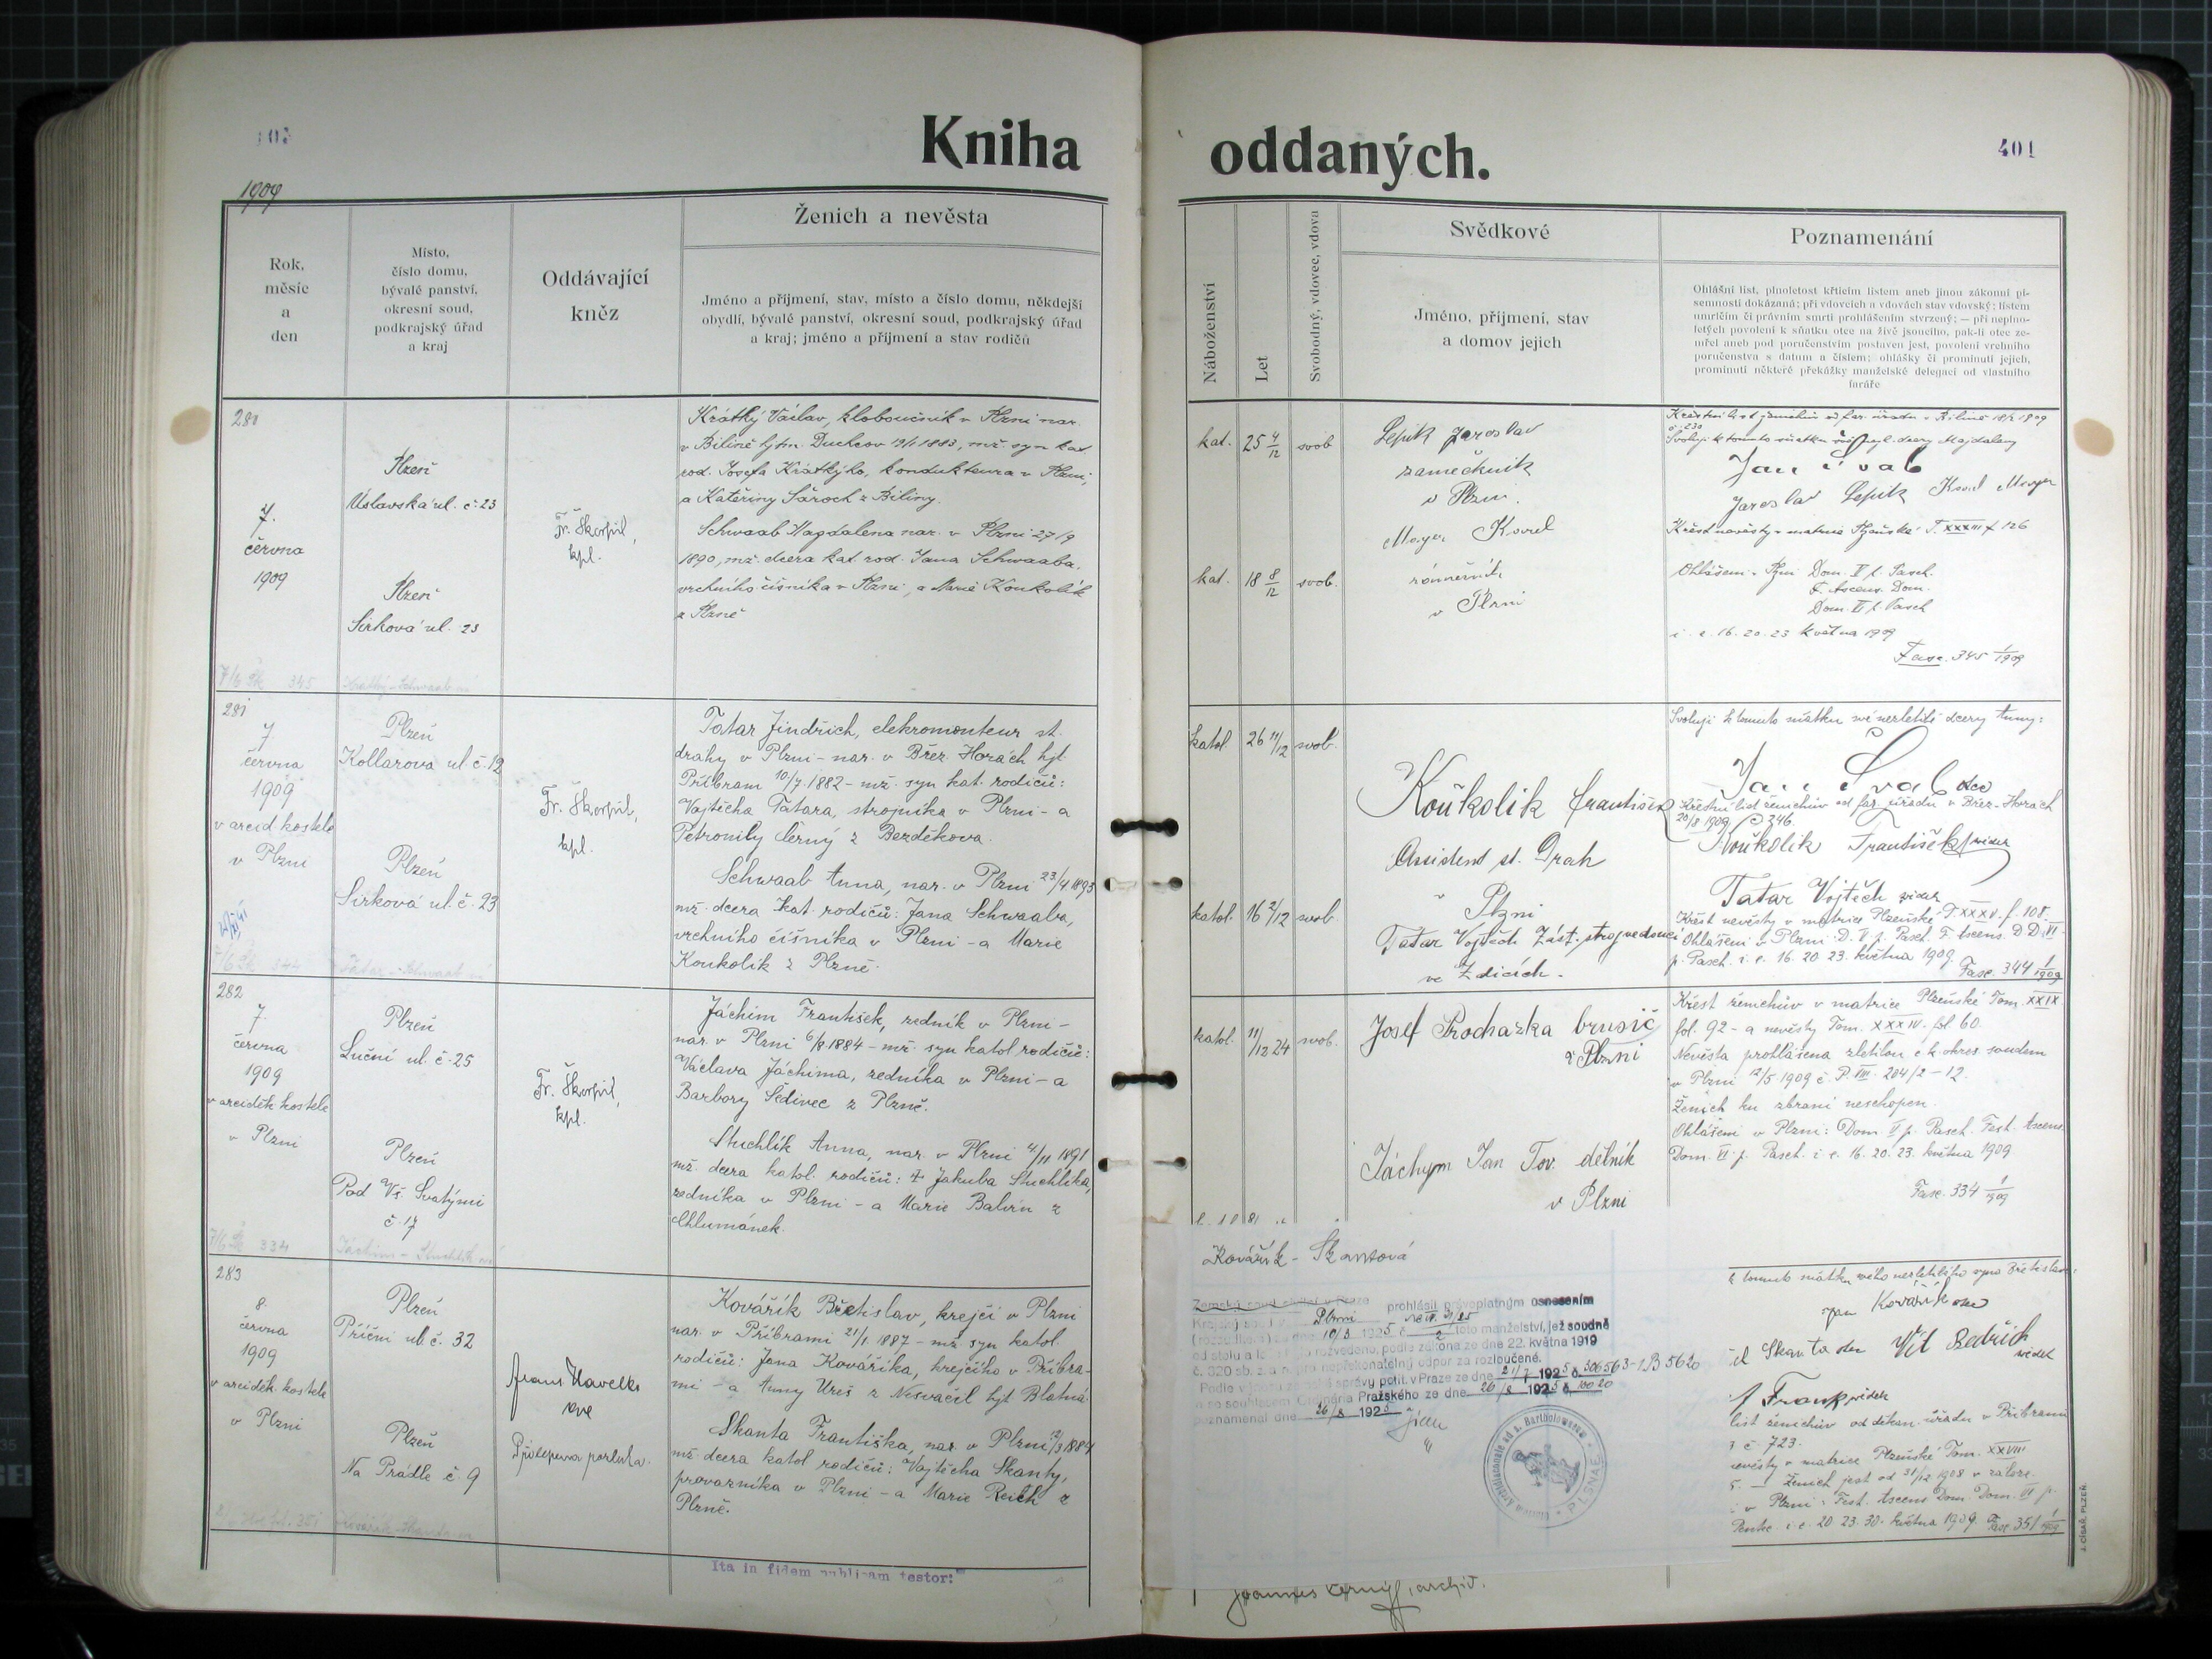 Kniha
oddaných.
401
1909
Rok,
měsíc
a
den
Místo,
číslo domu,
bývalé panství,
okresní soud,
podkrajský úřad
a kraj
Oddávající
kněz
Ženich a nevěsta
Jméno a přijmení, stav, místo a číslo domu, někdejší
obydlí, bývalé panství, okresní soud, podkrajský úřad
a kraj; jméno a přijmení a stav rodičů
Náboženství
Let
Svobodný, vdovec, vdova
Svědkové
Jméno, přijmení, stav
a domov jejich
Poznamenání
Ohlášní list, plnoletost křticím listem aneb jinou zákonní pí-
semností dokázaná; při vdovcích a vdovách stav vdovský; listem
umrlčím či právním smrti prohlášením stvrzený; — při neplno-
letých povolení k sňatku otce na živě jsoucího, pak-li otec ze-
mřel aneb pod poručenstvím postaven jest, povolení vrchního
poručenstva s datum a číslem; ohlášky či prominutí jejich,
prominutí některé překážky manželské delegací od vlastního
faráře
280
7.
června
1909
Plzeň
Úslavská ul. č. 23
Plzeň
Sirková ul. 23
Fr. Škorpil,
kpl.
Krátký Václav, kloboučník v Plzni nar.
v Bílině hjtm. Duchcov 19/1 1883, mž. syn kat
rod. Josefa Krátkýho, kondukteura v Plzni,
a Kateřiny Šároch z Biliny.
Schwaab Magdalena nar. v Plzni 27/9
1890, mž. dcera kat. rod. Jana Schwaaba,
vrchního číšníka v Plzni, a Marie Koukolík
z Plzně
kat. 25 4/12 svob
kat. 18 8/12 svob.
Lepik Jaroslav
zámečník
v Plzni.
Mayer Karel
v Plzni
Křestní list ženichův od far. úřadu v Bílině 18/2 1909
č. 230
Svoluji k tomuto sňatku své nezl. dcery Magdaleny
Jan Šváb
Jaroslav Lepik Karel Mayer
Křest nevěsty v matrice Plzeňské T. XXXIII f 126
Ohlášeni v Plzni Dom. V p. Pasch.
F. Ascens. Dom.
Dom. VI p. Pasch
i. e. 16. 20. 23 května 1909
Fasc. 345 1/1909
7/6 Šk 345 Krátký - Schwaab
281
7.
června
1909
v arcid. kostele
v Plzni
Plzeň
Kollarova ul. č. 12
Plzeň
Sirková ul. č. 23
Fr. Škorpil,
kpl.
Tatar Jindřich, elekromonteur st.
dráhy v Plzni - nar. v Břez. Horách hjt.
Příbram 10/7 1882 - mž. syn kat. rodičů:
Vojtěcha Tatara, strojníka v Plzni - a
Petronily Černý z Bezděkova.
Schwaab Anna, nar. v Plzni 23/4 1893
mž. dcera kat. rodičů: Jana Schwaaba,
vrchního číšníka v Plzni - a Marie
Koukolík z Plzně.
katol. 26 11/12 svob.
katol. 16 2/12 svob.
Koukolík František
Assistent st. Drah
v Plzni
Tatar Vojtěch Zást. strojvedoucí
ve Zdicích.
Svoluji k tomuto sňatku své nezletilé dcery Anny:
Jan Šváb otec
Křestní list ženichův od far. úřadu v Břez. Horách
20/3 1909 č 346
Koukolík František svědek
Tatar Vojtěch svědek
Křest nevěsty v matrice Plzeňské T. XXXV. f. 108.
Ohlášeni v Plzni: D. V. p. Pasch. F. Ascens. D. D. VI.
p. Pasch. i. e. 16. 20. 23. května 1909.
Fasc. 344 1/1909
7/6 Šk 344 Tatar - Schwaab
282
7.
června
1909
v arciděk. kostele
v Plzni
Plzeň
Luční ul. č. 25
Plzeň
Pod Vš. Svatými
č. 17
Fr. Škorpil,
kpl.
Jáchim František, zedník v Plzni -
nar. v Plzni 6/8 1884 - mž. syn katol. rodičů:
Václava Jáchima, zedníka v Plzni - a
Barbory Šedivec z Plzně.
Stuchlík Anna, nar. v Plzni 4/11 1891
mž. dcera katol. rodičů: † Jakuba Stuchlíka,
zedníka v Plzni - a Marie Balvín z
Chlumánek.
katol. 11/12 24 svob.
Josef Prochazka brusič
v Plzni
Jáchym Jan Tov. dělník
v Plzni
Křest ženichův v matrice Plzeňské Tom. XXIX.
fol. 92 - a nevěsty Tom. XXXIV. fol 60.
Nevěsta prohlášena zletilou c. k. okres. soudem
v Plzni 12/5 1909 č. P. VIII. 204/2-12.
Ženich ku zbrani neschopen.
Ohlášeni v Plzni: Dom. V p. Pasch. Fest. Ascens.
Dom. VI. p. Pasch. i. e. 16. 20. 23. května 1909
Fasc. 334 1/1909
7/6 Šk 334 Jáchim - Stuchlík
283
8.
června
1909
v arciděk. kostele
v Plzni
Plzeň
Příční ul. č. 32
Plzeň
Na Prádle č. 9
Frant. Havelka
Kovářík Břetislav, krejčí v Plzni
nar. v Příbrami 21/1 1887 - mž. syn katol.
rodičů: Jana Kováříka, krejčího v Příbra-
mi - a Anny Ureš z Nesvačil hjt. Blatná
Skanta Františka, nar. v Plzni 12/3 1884
mž. dcera katol. rodičů: Vojtěcha Skanty,
provazníka v Plzni - a Marie Reich z
Plzně.
Kovářík - Skantová
Zemský soud civilní v Praze prohlásil právoplatným usnesením
Krajský soud v Plzni
(rozsudkem) ze dne 10/3 1925 č. 2 toto manželství, jež soudně
od stolu a lože bylo rozvedeno, podle zákona ze dne 22. května 1919
č. 320 sb. z. a n. pro nepřekonatelný odpor za rozloučené.
Podle výnosu zemské správy polit. v Praze ze dne 21/7 1925 č. 306563-1B 5620
a se souhlasem Ordinária Pražského ze dne 26/8 1925 č. 10020
poznamenal dne 26/8 1925
k tomuto sňatku svého nezletilého syna Břetislava:
Jan Kovářík otec
Skanta otec Vít Bedřich
svědek
Frank svědek
list ženichův od děkan. úřadu v Příbrami
č 723.
nevěsty v matrice Plzeňské Tom. XXVIII
5. — Ženich jest od 31/12 1908 v záloze.
v Plzni: Fest. Ascens Dom. Dom. VI p.
Pentec. i. e. 20. 23. 30. května 1909. Fasc. 351 1/1909
Ita in fidem publicam testor:
Joannes Černý, archid.
J. CÍSAŘ, PLZEŇ.